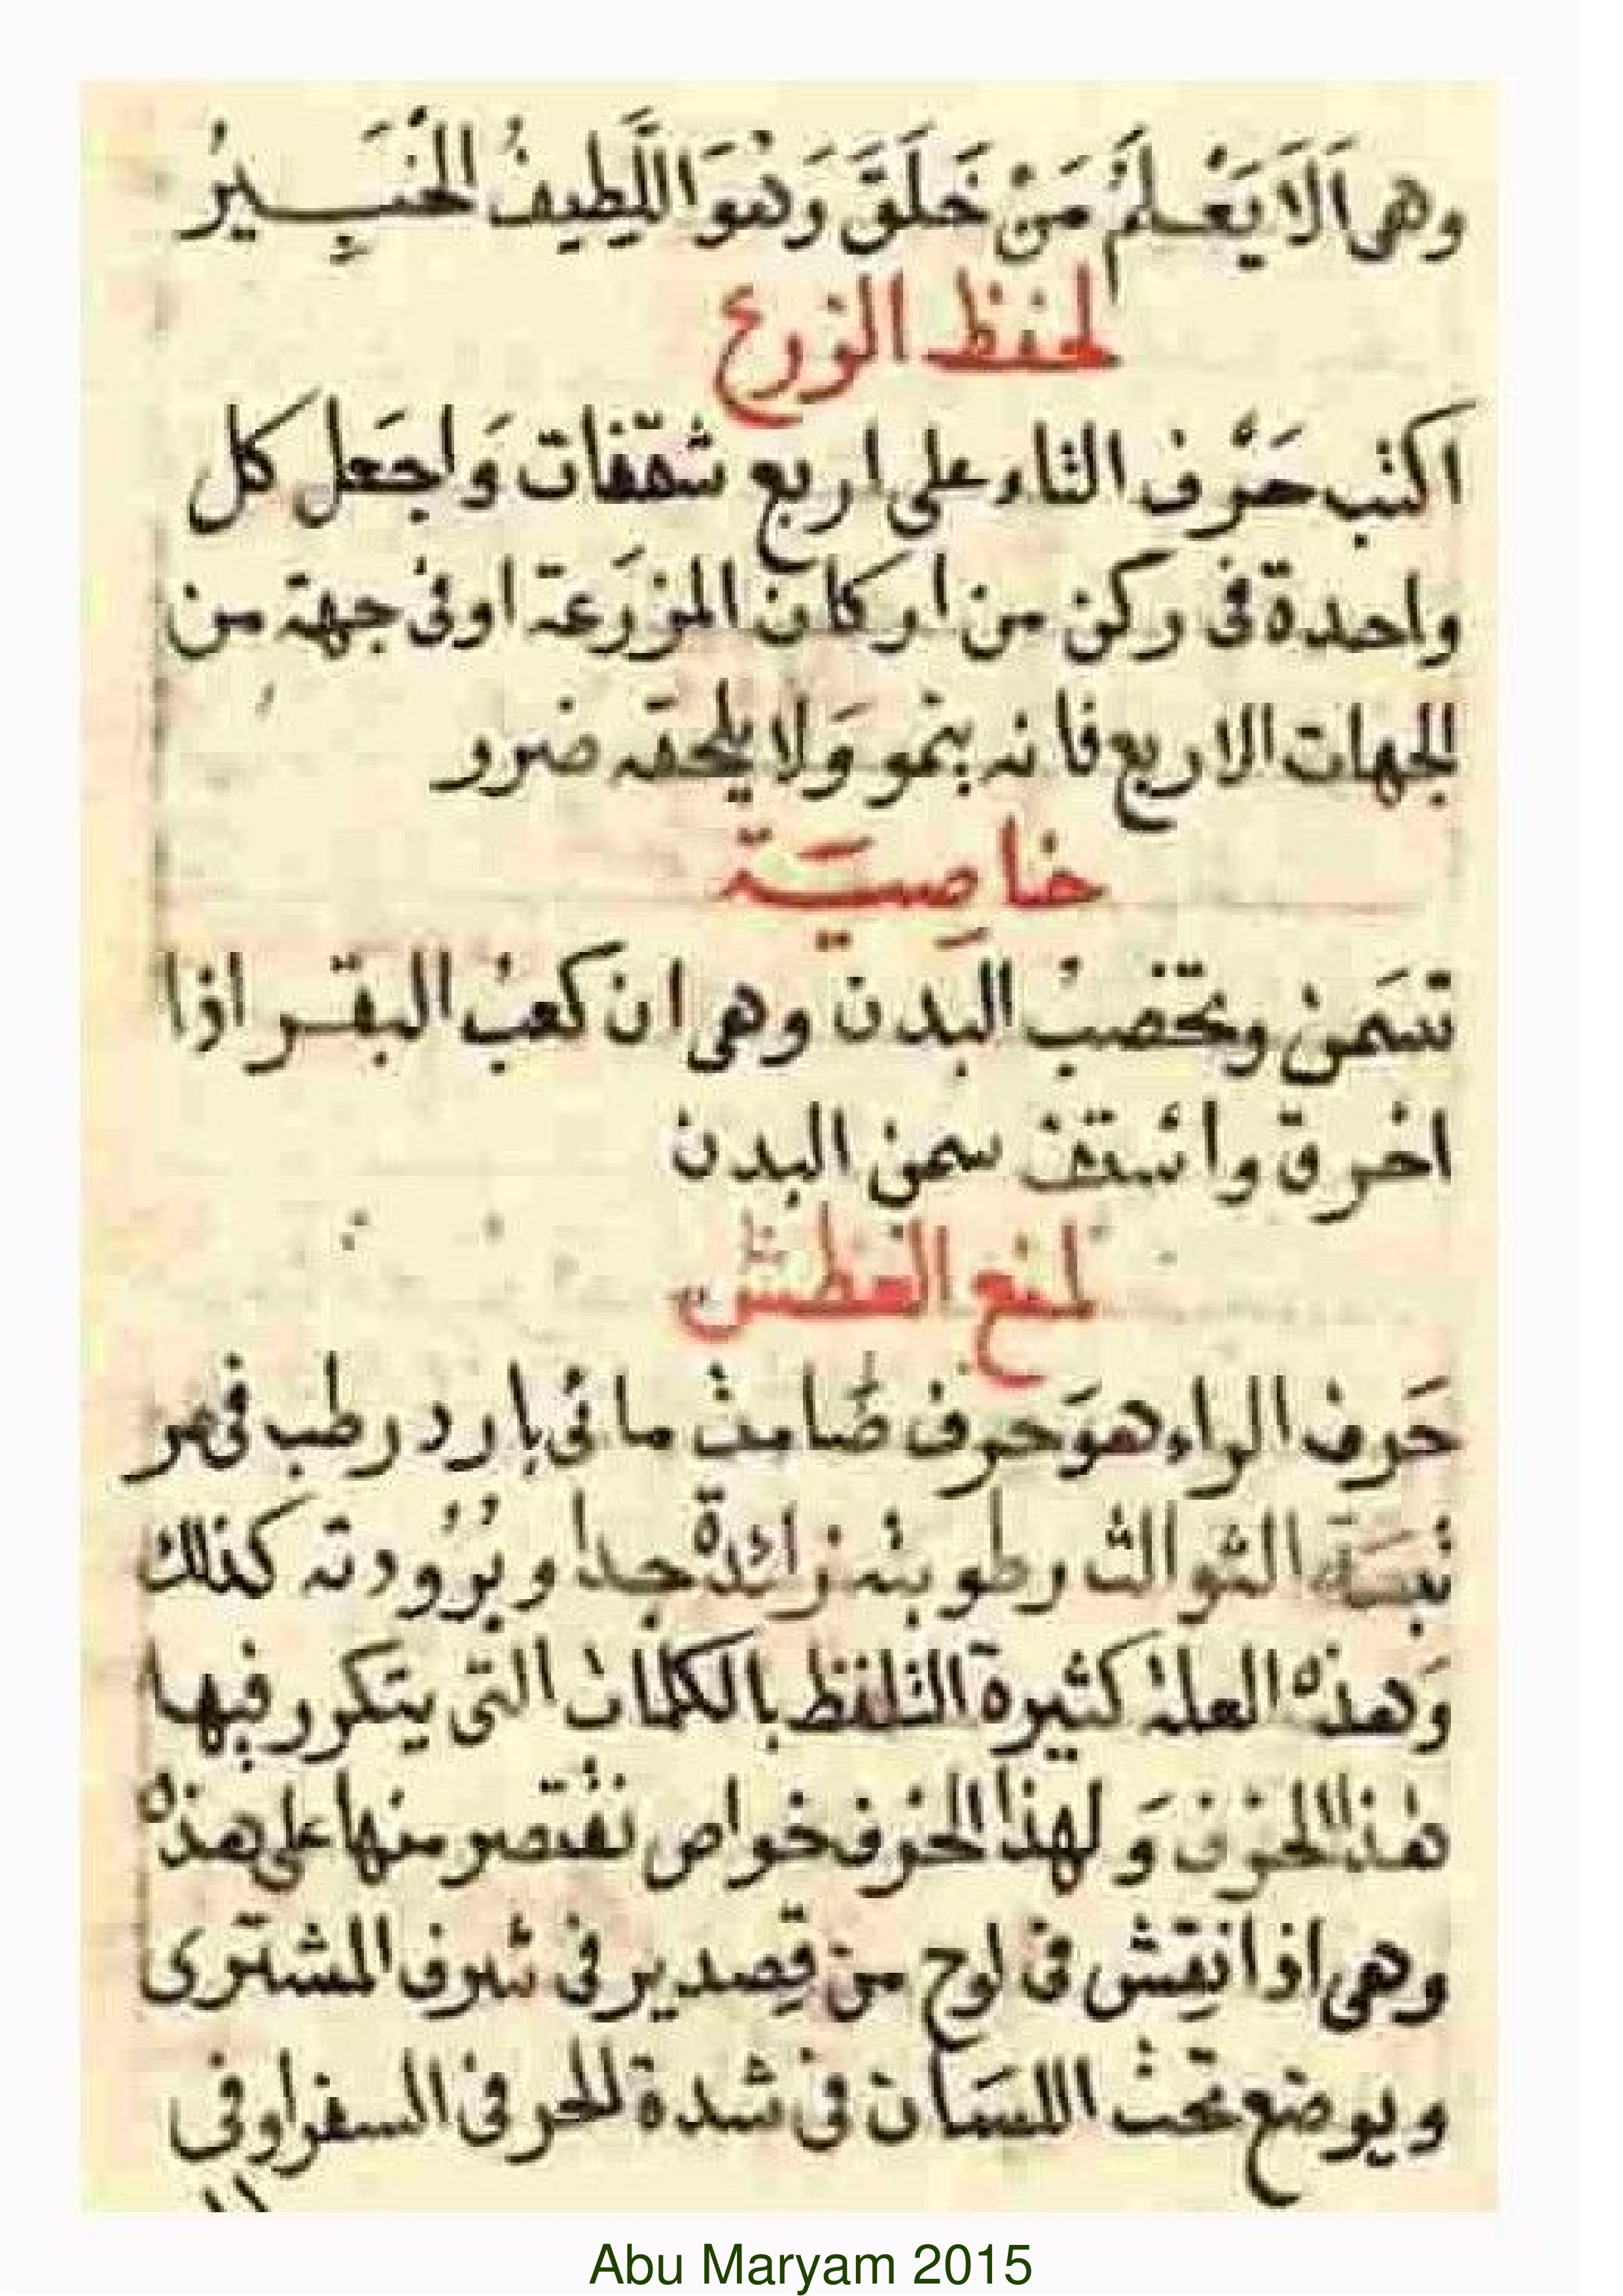 وهى الَا يَعْلَمُ مَنْ خَلَقَ وَهْوَ اللَّطِيفُ الْخَبِيرُ
لحفظ الزرع
اكتب حَرْف الثاء على اربع شقفات وَاجعَل كل
واحدة فى ركن من اركان المزرَعة اوفى جهة من
الجهات الاربع فانه ينمو وَلا يلحقه ضرر
خاصِيَة
تسَمن وتخصبُ البَدن وهى ان كعبُ البقر اذا
احرق واستف سمن البدن
لمنع العطش
حَرف الراء هوَ حرف صَامت مائى بارد رطب فى مر
تبَة الثوالث رطوبته زائدة جدا وبُرُودته كذلك
وَهذه العلة كثيرة التلفظ بالكلمات التى يتكرر فيها
هذا الحرْف وَلهذا الحرْف خواص نقتصر منها على هذه
وهى اذا نقِش فى لوح من قِصدير فى شرف المشترى
ويوضع تحت اللسَان فى شدة الحر فى السفر اوفى